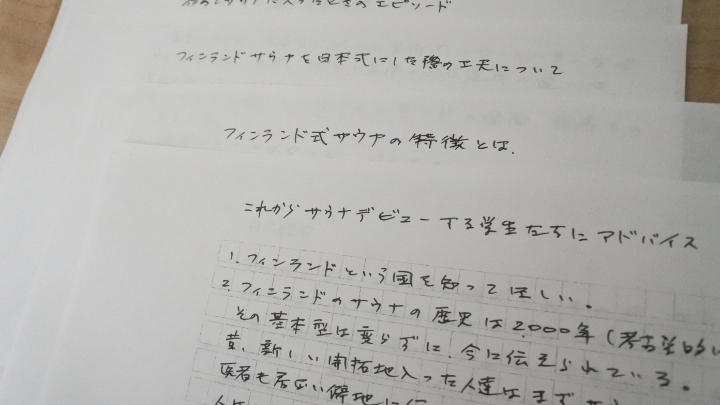 初めてサウナに入ったときのエピソード
フィンランドサウナを日本式にした際の工夫について
フィンランド式サウナの特徴とは、
これからサウナデビューする学生たちにアドバイス
1. フィンランドという国を知ってほしい。
2. フィンランドのサウナの歴史は2,000年(考古学的
その基本型は変らずに、今に伝えられている。
昔、新しい開拓地入った人達はまず
医者も居ない僻地に